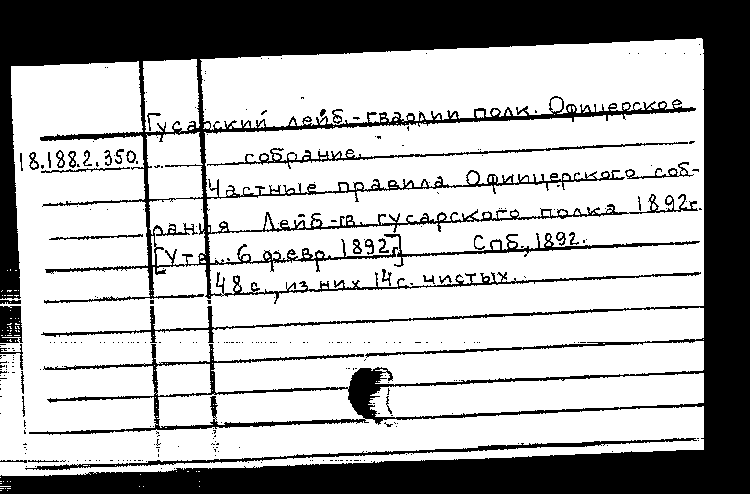 Гусарский лейб.-гвардии полк. Офицерское
18.188.2.350.
собрание.
Частные правила Офиицерского соб-
рания Лейб-гв. гусарского полка 1892г.
[Утв... 6 февр. 1892г.] Спб., 1892.
48 с., из них 14 с. чистых.